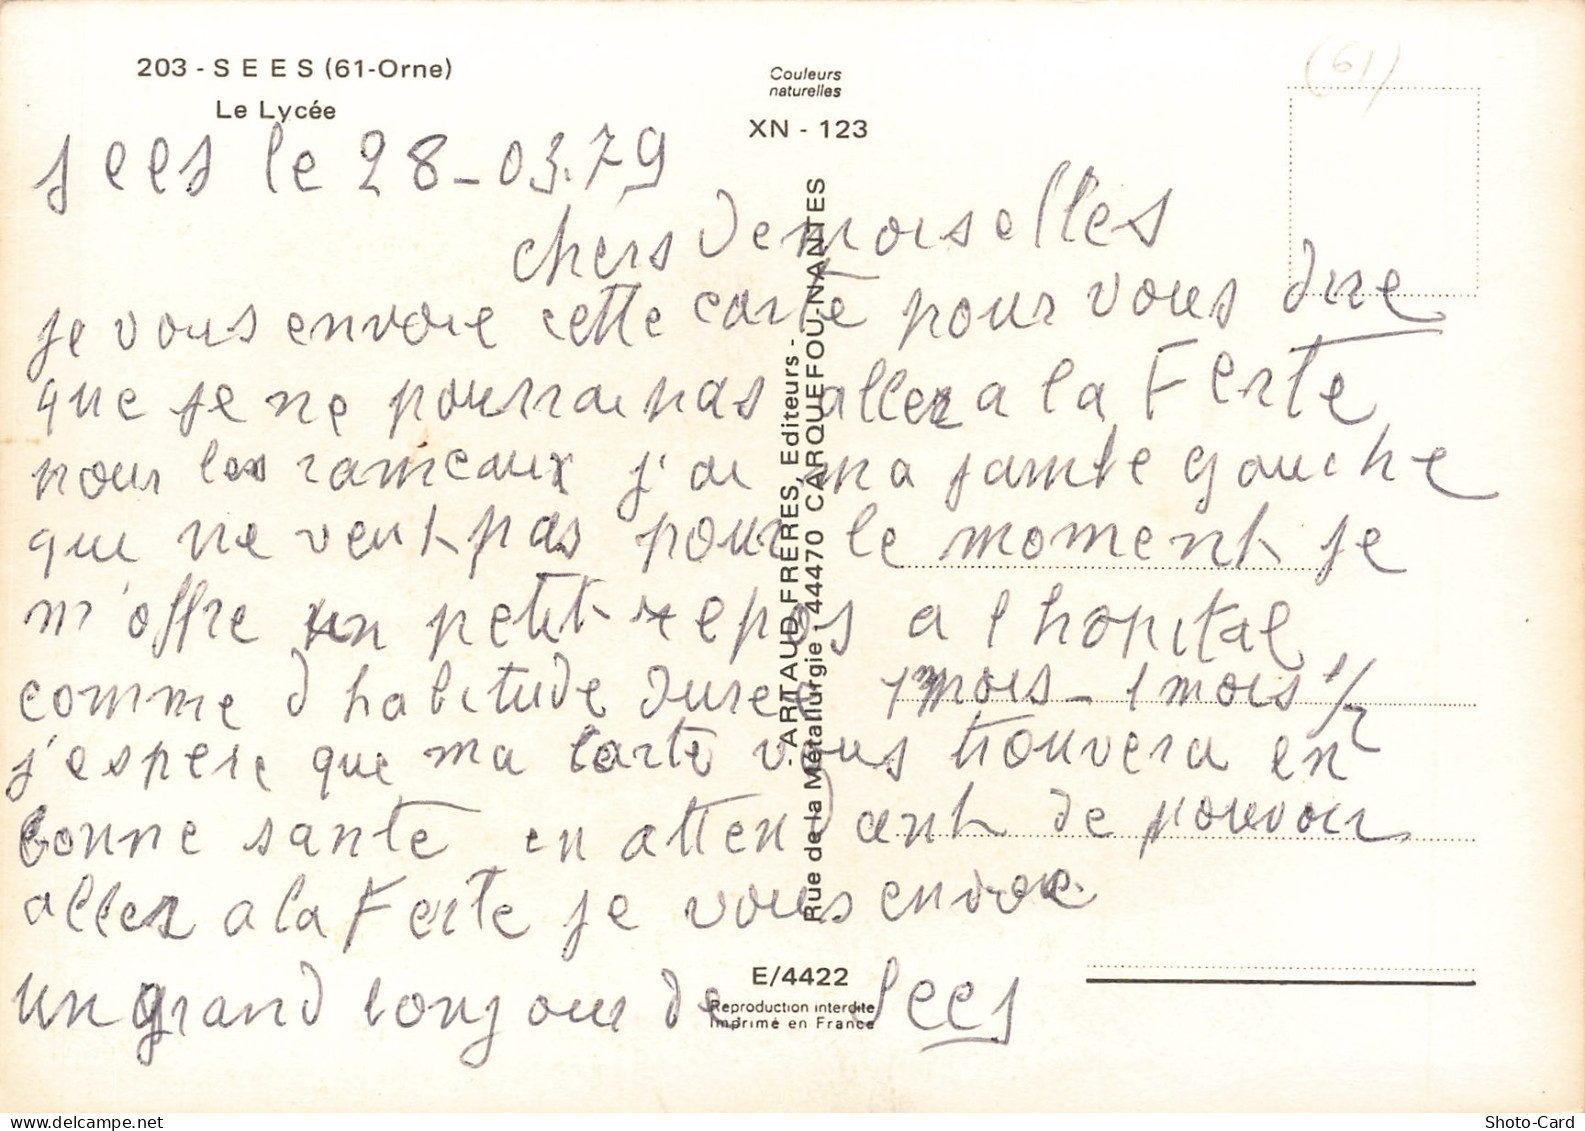 203 - SEES (61-Orne)
Le Lycée
Couleurs
naturelles
XN - 123
(61)
sees le 28-03.79
chers Demoiselles
je vous envoie cette carte pour vous dire
que je ne pourrai pas aller a la Ferte
pour les rameaux j'ai ma jambe gauche
que ne veut pas pour le moment je
m'offre un petit repos a l hopital
comme d habitude duree 1 mois - 1 mois 1/2
j'espere que ma carte vous trouvera en
bonne sante en attendant de pouvoir
aller a la Ferte je vous envoie
un grand bonjour de Sees
- ARTAUD FRÈRES, Editeurs -
Rue de la Métallurgie - 44470 CARQUEFOU-NANTES
E/4422
Reproduction interdite
Imprimé en France
Shoto-Card